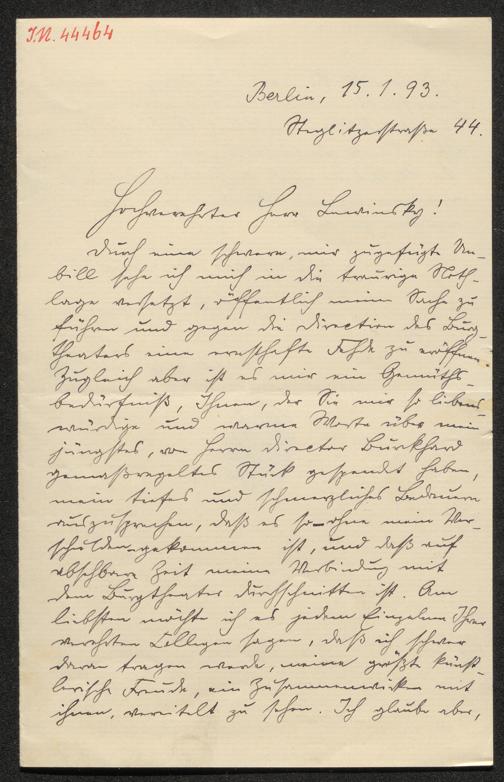 I.N. 44464
Berlin, 15.1.93.
Steglitzerstraße 44.
Hochverehrter Herr Lewinsky!
Durch eine schwere, mir zugefügte Un-
bill sehe ich mich in die traurige Noth-
lage versetzt, öffentlich meine Sache zu
führen und gegen die Direction des Burg-
theaters eine ernsthafte Fehde zu eröffnen.
Zugleich aber ist es mir ein Gemüths-
bedürfniß, Ihnen, der Sie mir so liebens-
würdige und warme Worte über mein
jüngstes, von Herrn Director Burckhard
gemaßregeltes Stück gespendet haben,
mein tiefes und schmerzliches Bedauern
auszusprechen, daß es so – ohne mein Ver-
schulden – gekommen ist, und daß auf
absehbare Zeit meine Verbindung mit
dem Burgtheater durchschnitten ist. Am
liebsten möchte ich es jedem Einzelnen Ihrer
verehrten Collegen sagen, daß ich schwer
daran tragen werde, meine größte künst-
lerische Freude, ein Zusammenwirken mit
ihnen, vereitelt zu sehen. Ich glaube aber,